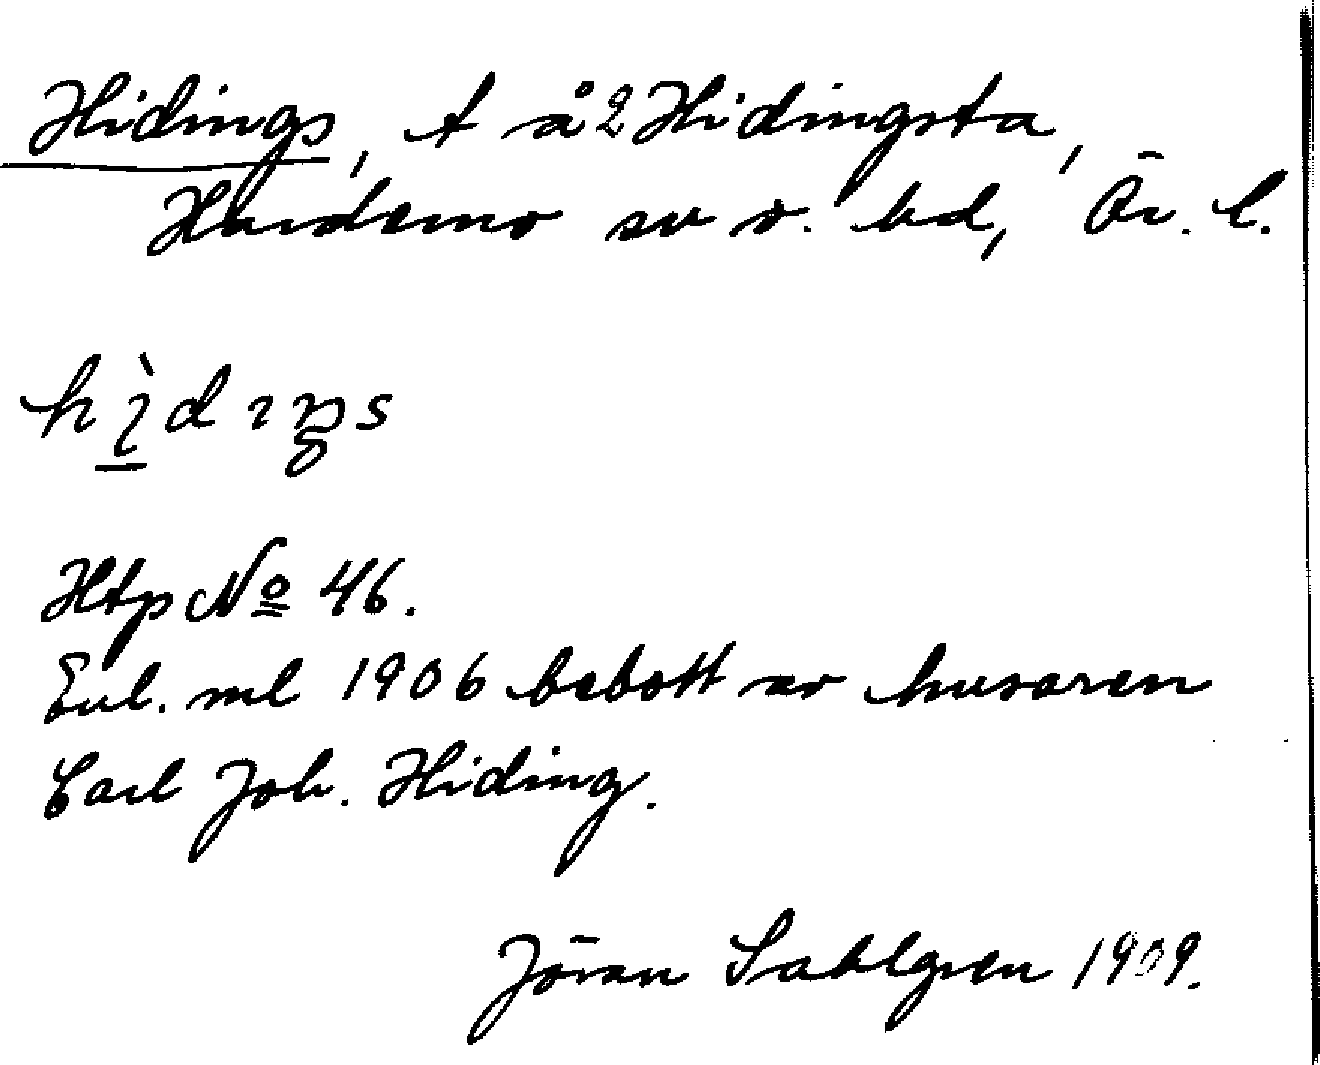 Hidings, t å 2 Hidingsta,
Hardemo sn o. hd, Ör. l.
Htp No 46.
Enl. ml 1906 bebott av husaren
Carl Joh. Hiding.
Jöran Sahlgren 1909.